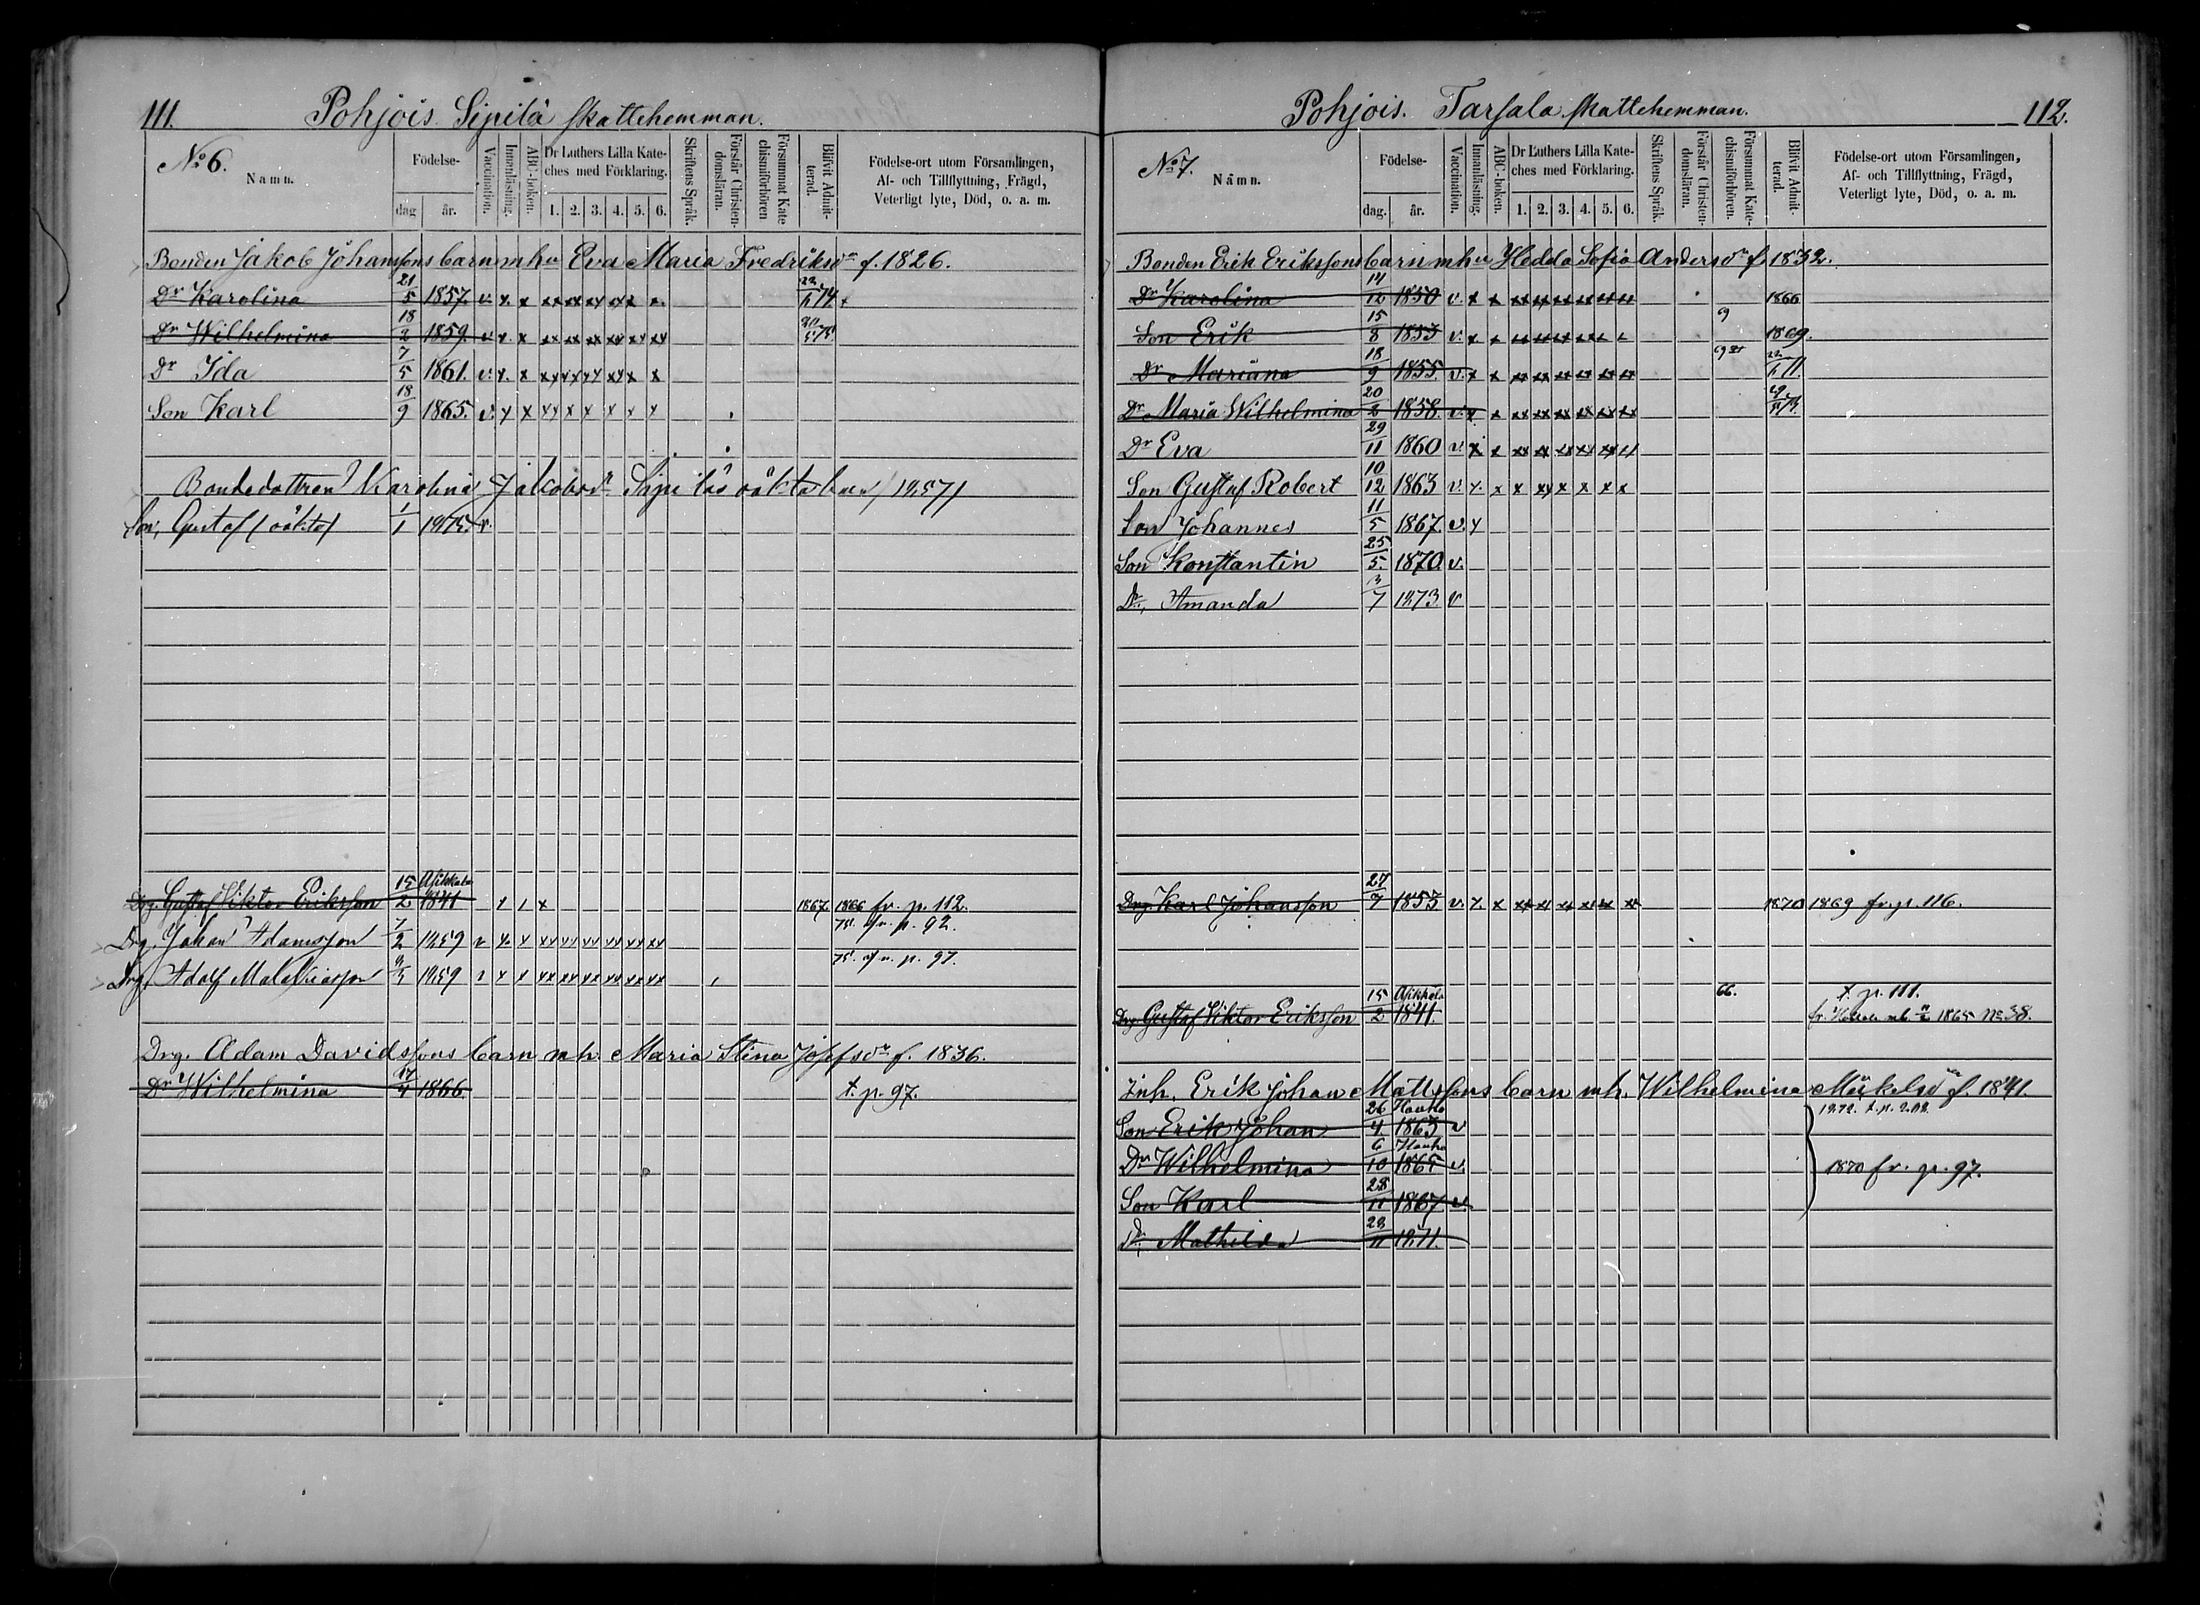 111. Pohjois Sipilä skattehemman.
No 6.
Namn.
Födelse-
dag år.
Vaccination.
Innanläsning.
ABC-boken.
Dr Luthers Lilla Kate-
ches med Förklaring.
1. 2. 3. 4. 5. 6.
Skriftens Språk.
Förstår Christen-
domsläran.
Försummat Kate
chismiförhören
Blifvit Admit-
terad.
Födelse-ort utom Församlingen,
Af- och Tillflyttning, Frägd,
Veterligt lyte, Död, o. a. m.
Bonden Jakob Johanssons barn mhu Eva Maria Fredriksdr f. 1826.
Dr Karolina 21/5 1857. v. x x xx xx xx xx x x. 74
Dr Wilhelmina 18/2 1859. v. x. x xx xx xx xx xx xx
Dr Ida 7/5 1861. v. x. x xx xx xx xx x x
Son Karl 18/9 1865. v. x x xx x x x x x
Bondedottren Karolina Jakobsdr Sipiläs oäkta barn /1857/
Son, Gustaf /oäkta/ 1/1 1875. v.
Drg. Gustaf Viktor Eriksson 15/2 Asikkala 1841 x / x 1867 1866 fr. p. 112.
Drg. Johan Adamsson 7/2 1859 v x x xx xx xx xx xx xx 75. p. 92.
Drg. Adolf Malakiasson 1859 x x xx xx xx xx xx xx 75. p. 97.
Drg. Adam Davidssons barn mh. Maria Stina Josefsdr f. 1836.
Dr Wilhelmina 17/4 1866. t. p. 97.
Pohjois. Tarsala skattehemman. 112.
No 7.
Namn.
Födelse-
dag. år.
Vaccination.
Innanläsning.
ABC-boken.
Dr Luthers Lilla Kate-
ches med Förklaring.
1. 2. 3. 4. 5. 6.
Skriftens Språk.
Förstår Christen-
domsläran.
Försummat Kate-
chismiförhören.
Blifvit Admit-
terad.
Födelse-ort utom Församlingen,
Af- och Tillflyttning, Frägd,
Veterligt lyte, Död, o. a. m.
Bonden Erik Erikssons barn mhu Hedda Sofia Andersdr f. 1832.
Dr Karolina 14/12 1850 v x x xx xx xx xx xx xx 1866
Son Erik 15/8 1853 v. x x xx xx xx xx xx x 9 1869.
Dr Mariana 18/9 1855. v. x x xx xx xx xx xx xx 71.
Dr Maria Wilhelmina 20/2 1858. v. x x xx xx xx xx xx xx
Dr Eva 29/11 1860 v. x x xx xx xx xx xx xx
Son Gustaf Robert 10/12 1863 v. x. x x xx x x x x
Son Johannes 11/5 1867. v. x
Son Konstantin 25/5. 1870. v.
Dr, Amanda 3/7 1873. v
Drg. Karl Johansson 27/7 1855 v. x. x xx xx xx xx xx xx 1870 1869 fr. p. 116.
Drg. Gustaf Viktor Eriksson 15/2 Asikkala 1841. 66. t. p. 111.
1865 No 38.
Inh. Erik Johan Mattssons barn mh. Wilhelmina Mikelsdr f. 1841.
Son Erik Johan 26/4 Hauho 1863 v 1872. t. p.
Dr Wilhelmina 6/10 Hauho 1865 v. 1870 fr. p. 97.
Son Karl 28/11 1867 v
Dr, Mathilda 23/11 1871.